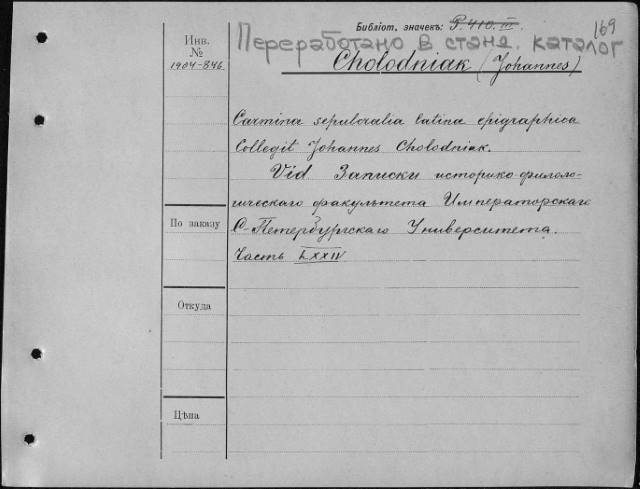 Библіот. значекъ: P. 410. III.
169
Переработано в станд. каталог
Инв.
№
1904-846.
Cholodniak (Johannes)
Carmina sepulcralia latina epigraphica
Collegit Johannes Cholodniak.
Vid Записки историко-филоло-
гическаго факультета Императорскаго
С-Петербургскаго Университета.
Часть LXXIV
По заказу
Откуда
Цѣна